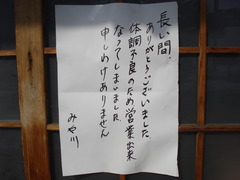 長い間、
ありがとうございました
体調不良のため営業出来
なくなってしまいました
申しわけありません
みや川